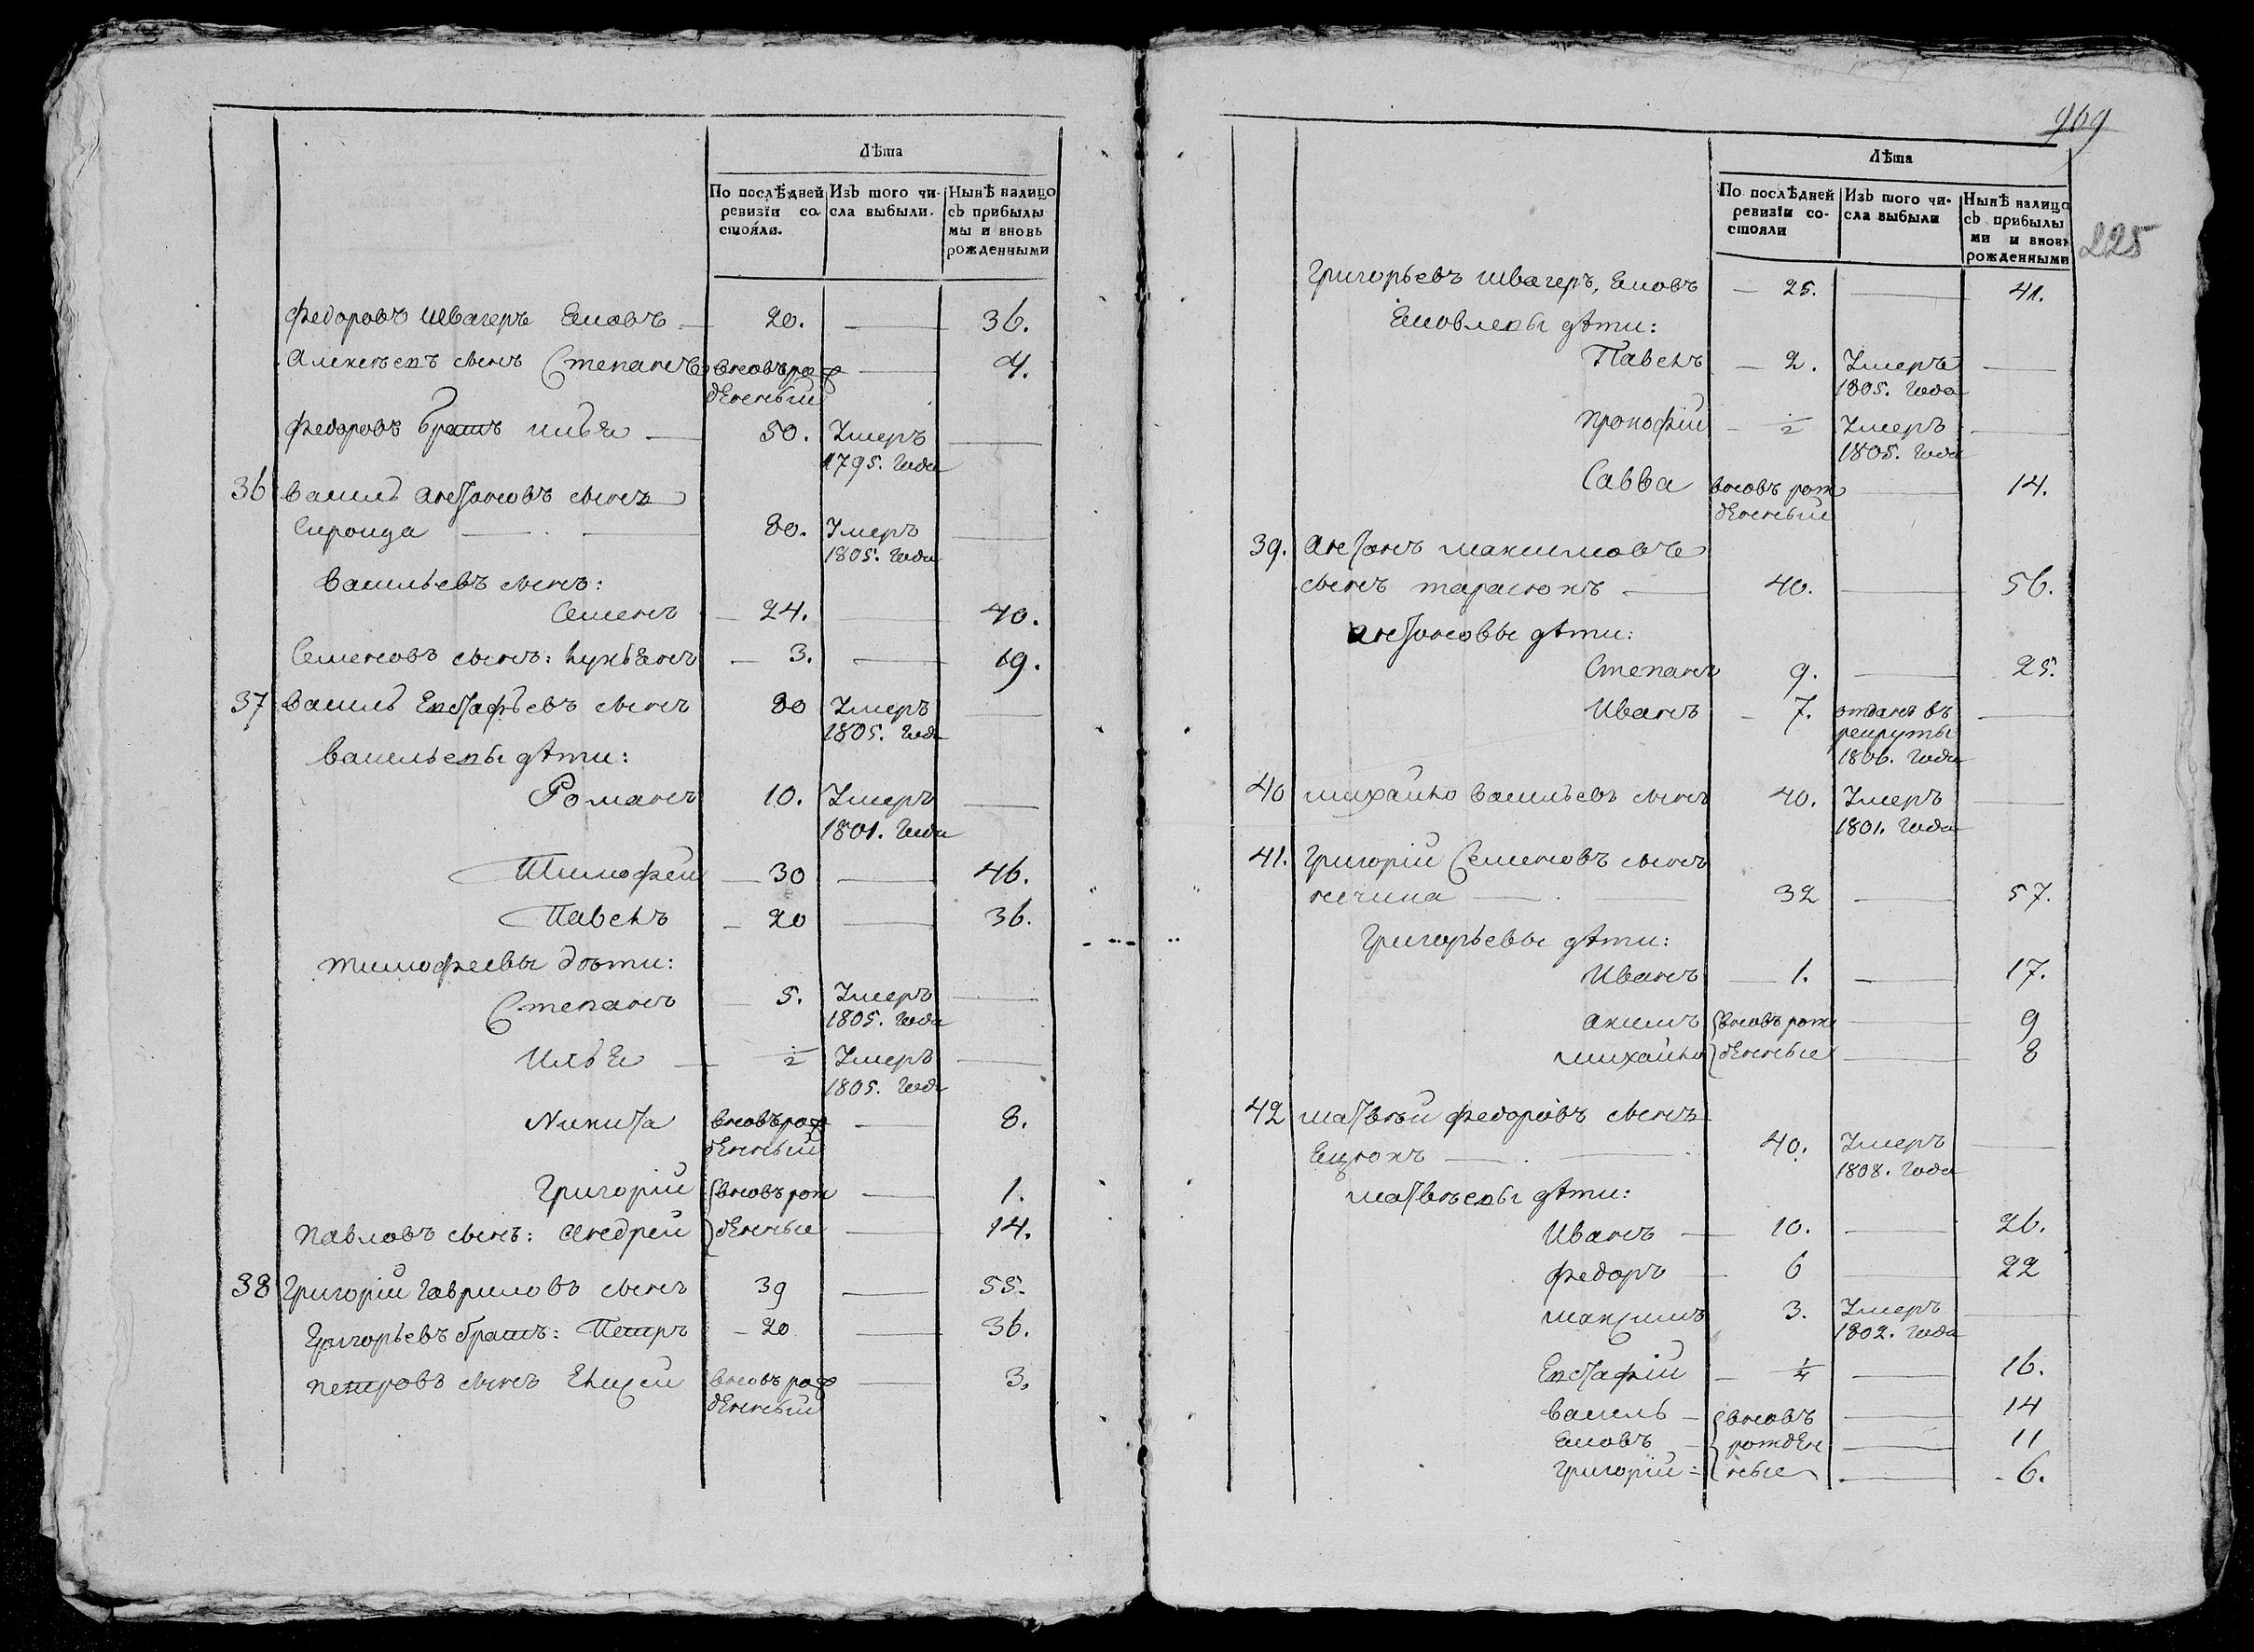 Лѣта
По послѣдней ревизіи со- стояли.
Изъ того чи- сла выбыли.
Нынѣ налицо съ прибылы мы и вновь рожденными
Федоровъ швагеръ Яковъ — 20. — 36.
Алексѣевъ сынъ Степанъ вновь рож — 4.
денный
Федоровъ братъ Илья — 50. Умеръ —
1795. года
36 Василь Антоновъ сынъ
Сироида — 80. Умеръ —
1805. года
Васильевъ сынъ:
Семенъ — 24. — 40.
Семеновъ сынъ: Лукьянъ — 3. — 19.
37 Василь Евстафьевъ сынъ 80 Умеръ —
1805. года
Васильевы дѣти:
Романъ 10. Умеръ —
1801. года
Тимофей — 30 — 46.
Павелъ — 20 — 36.
Тимофеевы дѣти:
Степанъ — 5. Умеръ —
1805. года
Илья — ½ Умеръ —
1805. года
Никита вновь рож — 8.
денный
Григорій вновь рож — 1.
Павловъ сынъ: Андрей денные — 14.
38 Григорій Гавриловъ сынъ 39 — 55.
Григорьевъ братъ: Петръ — 20 — 36.
Петровъ сынъ Елисей вновь рож — 3.
денный
969
225
Лѣта
По послѣдней ревизіи со- стояли
Изъ того чи- сла выбыли
Нынѣ налицо съ прибылы ми и вновь рожденными
Григорьевъ швагеръ, Яковъ — 25. — 41.
Яковлевы дѣти:
Павелъ — 2. Умеръ —
1805. года
Прокофій — ½ Умеръ —
1805. года
Савва вновь рож — 14.
денный
39. Антонъ Максимовъ
сынъ Тарасюкъ — 40. — 56.
Антоновы дѣти:
Степанъ 9. — 25.
Иванъ — 7. отданъ въ —
рекруты
1806. года
40 Михайло Васильевъ сынъ 40. Умеръ —
1801. года
41. Григорій Семеновъ сынъ
— 32 — 57.
Григорьевы дѣти:
Иванъ — 1. — 17.
Акимъ вновь рож — 9
Михайло денные — 8
42 Матвѣй Федоровъ сынъ
Яцюкъ — 40. Умеръ —
1808. года
Матвѣевы дѣти:
Иванъ — 10. — 26.
Федоръ — 6 — 22
Максимъ 3. Умеръ —
1802. года
Евстафій — ¼ — 16.
Василь — вновь — 14
Яковъ — рожден — 11
Григорій = ные — 6.